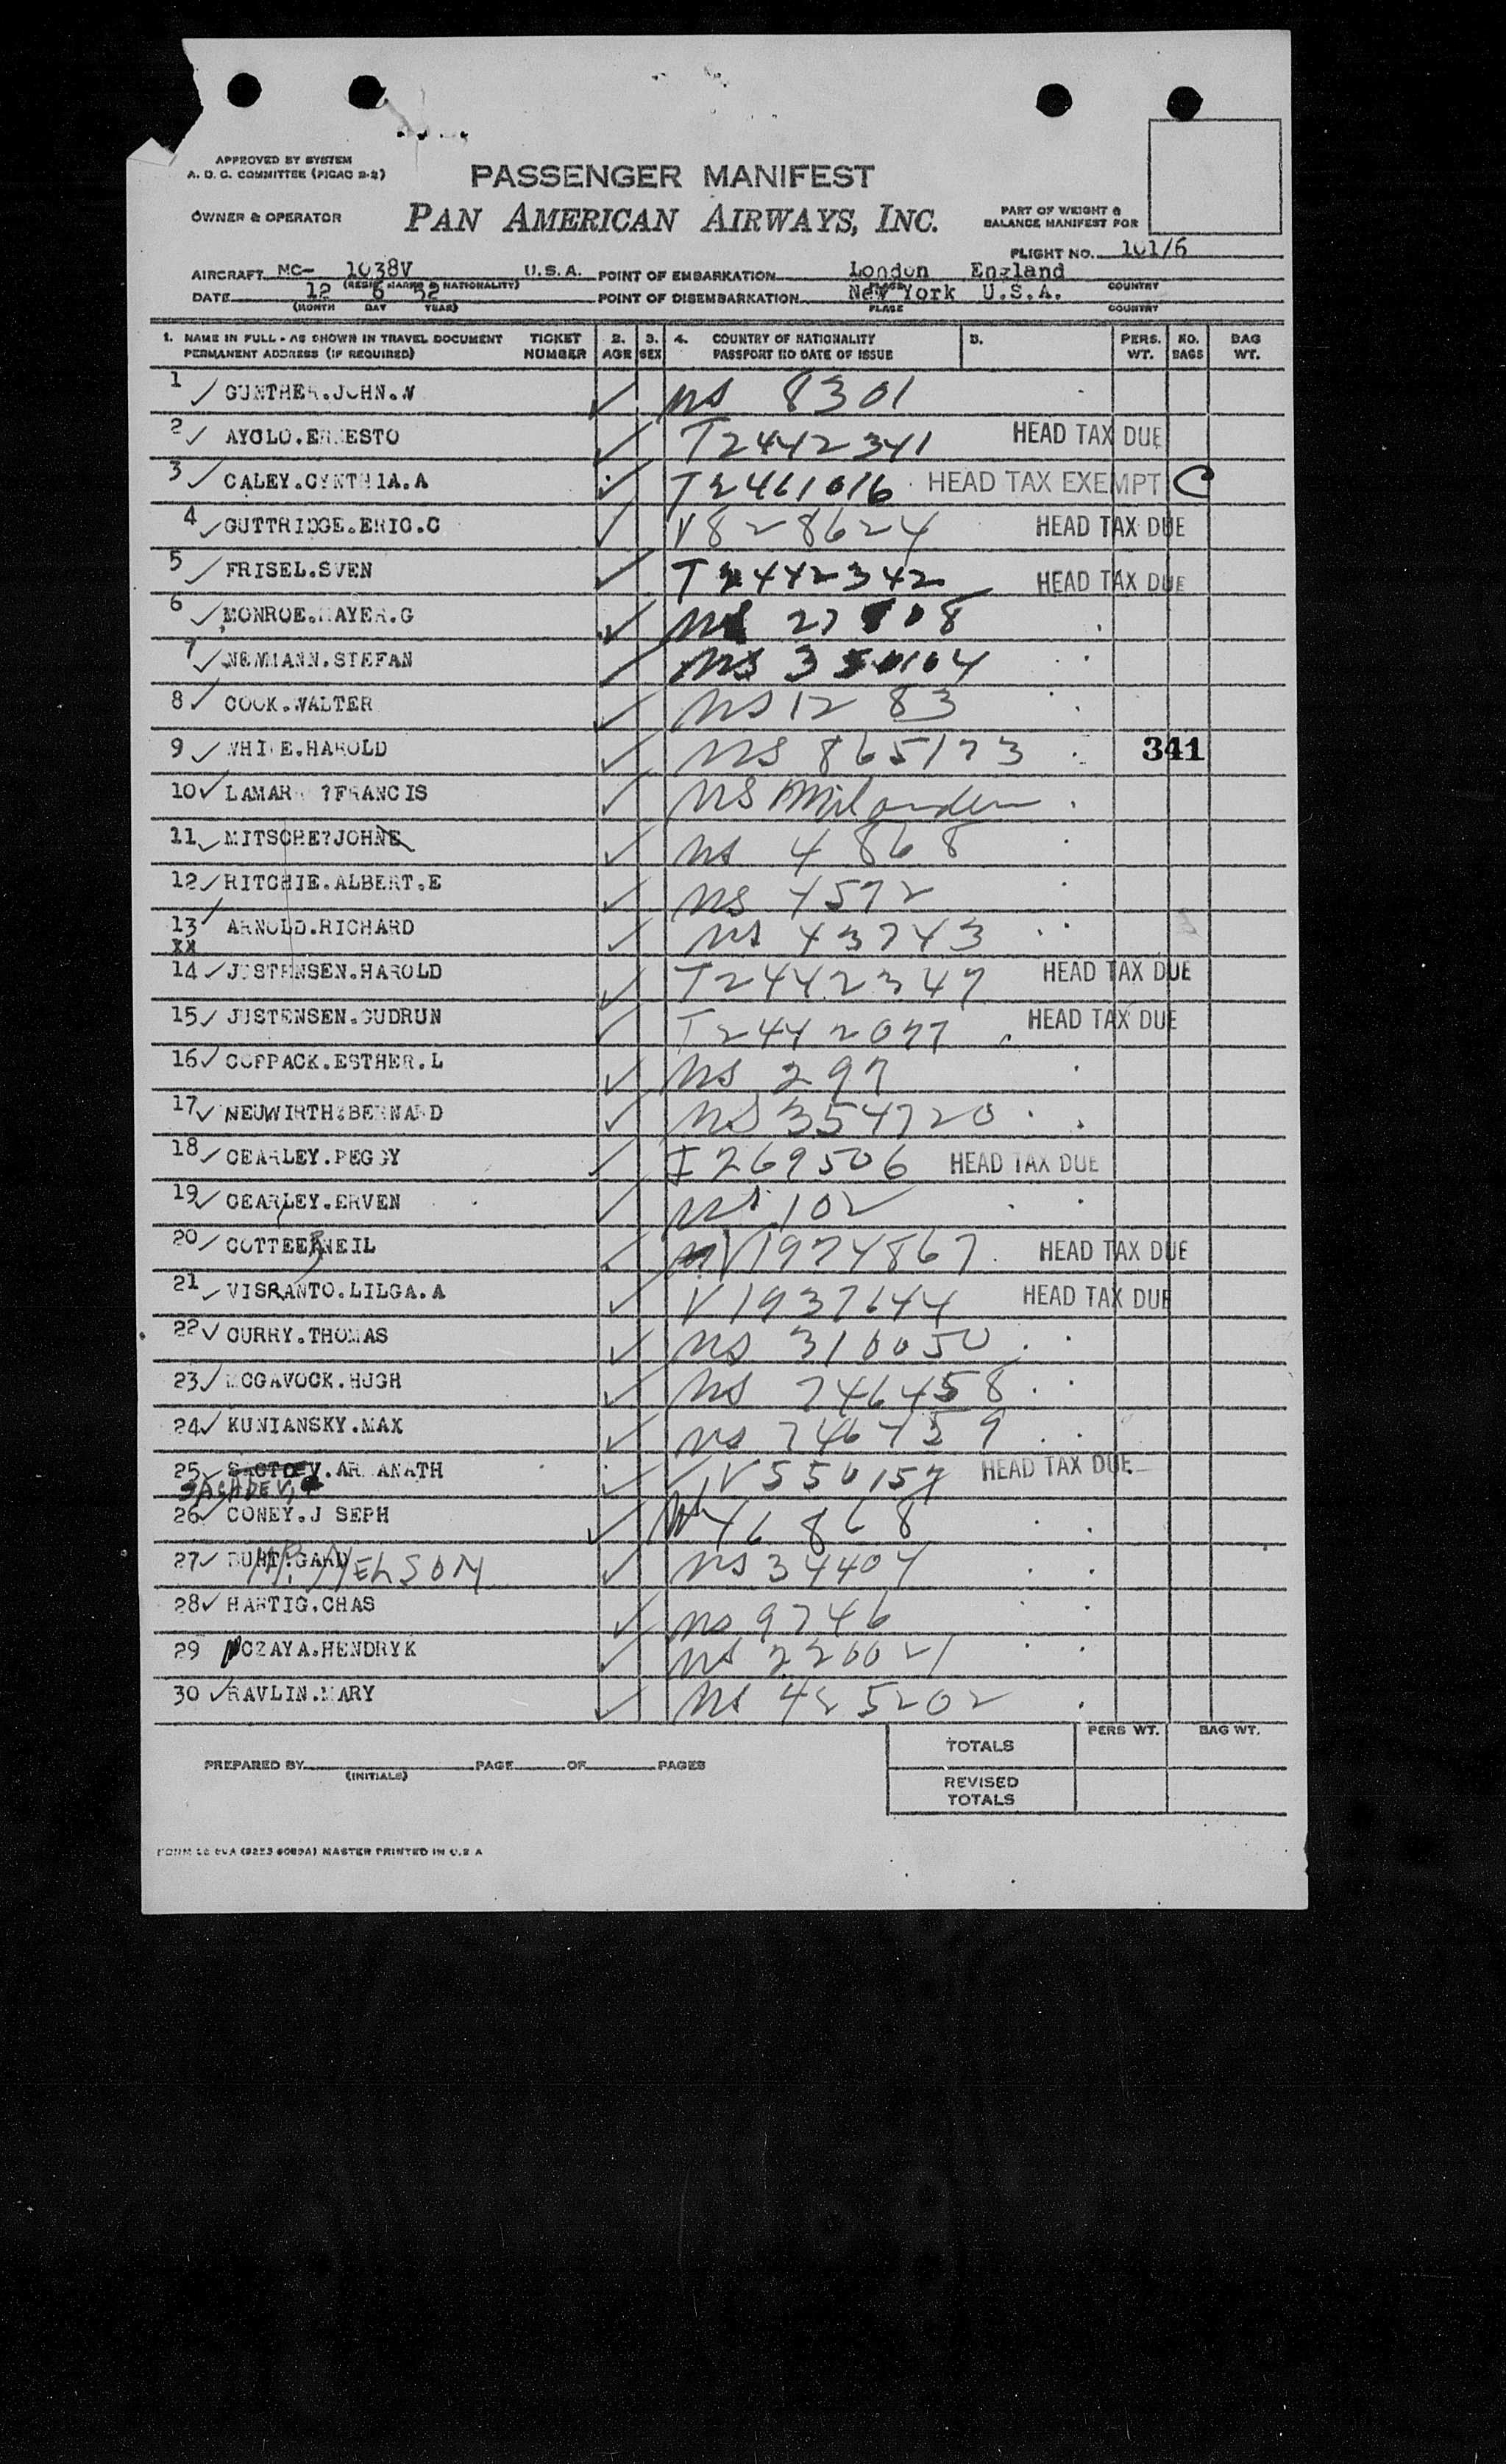 APPROVED BY SYSTEM
A. O. C. COMMITTEE (PICAO 2-2)
PASSENGER MANIFEST
OWNER & OPERATOR
PAN AMERICAN AIRWAYS, INC.
PART OF WEIGHT &
BALANCE MANIFEST FOR
FLIGHT NO. 101/6
AIRCRAFT NC- 1038V U.S.A. POINT OF EMBARKATION London England
DATE 12 6 52 POINT OF DISEMBARKATION New York U.S.A.
(MONTH DAY YEAR) PLACE COUNTRY
1. NAME IN FULL - AS SHOWN IN TRAVEL DOCUMENT TICKET 2. 3. 4. COUNTRY OF NATIONALITY 5. PERS. NO. BAG
PERMANENT ADDRESS (IF REQUIRED) NUMBER AGE SEX PASSPORT NO DATE OF ISSUE WT. BAGS WT.
1 ✓ GUNTHER.JOHN.W ✓ US 8301
2 ✓ AYOLO.ERNESTO ✓ T2442341 HEAD TAX DUE
3 ✓ CALEY.CYNTHIA.A ✓ T2461016 HEAD TAX EXEMPT C
4 ✓ GUTTRIDGE.ERIC.C ✓ V828624 HEAD TAX DUE
5 ✓ FRISEL.SVEN ✓ T2442342 HEAD TAX DUE
6 ✓ MONROE.MAYER.G ✓ US
7 ✓ NEWMANN.STEFAN ✓ US
8 ✓ COOK.WALTER ✓ US 12 83
9 ✓ WHI E.HAROLD ✓ US 865173 341
10 ✓ LAMAR ?FRANCIS ✓ US
11 ✓ MITSCHE?JOHNE ✓ US 4868
12 ✓ RITCHIE.ALBERT.E ✓ US 4572
13 ✓ ARNOLD.RICHARD ✓ US 43743
XX
14 ✓ JUSTENSEN.HAROLD ✓ T2442347 HEAD TAX DUE
15 ✓ JUSTENSEN.GUDRUN ✓ T2442077 HEAD TAX DUE
16 ✓ COPPACK.ESTHER.L ✓ US 297
17 ✓ NEUWIRTH:BERNARD ✓ US 354720
18 ✓ CEARLEY.PEGGY ✓ I 269506 HEAD TAX DUE
19 ✓ CEARLEY.ERVEN ✓ US 102
20 ✓ COTTEER NEIL ✓ V1974867 HEAD TAX DUE
21 ✓ VISRANTO.LILGA.A ✓ V1937644 HEAD TAX DUE
22 ✓ CURRY.THOMAS ✓ US 310050
23 ✓ MCGAVOCK.HUGH ✓ US 746458
24 ✓ KUNIANSKY.MAX ✓ US 746459
25 .AR ANATH ✓ V550157 HEAD TAX DUE
SACHDEV,
26 ✓ CONEY.J SEPH ✓ 46868
27 ✓ BURT.GARD NELSON ✓ US 34404
28 ✓ HARTIG.CHAS ✓ US 9746
29 OZAYA.HENDRYK ✓ US 220021
30 ✓ RAVLIN.MARY ✓ US 425202
PERS WT. BAG WT.
TOTALS
PREPARED BY PAGE OF PAGES
(INITIALS)
REVISED
TOTALS
MASTER PRINTED IN U.S.A